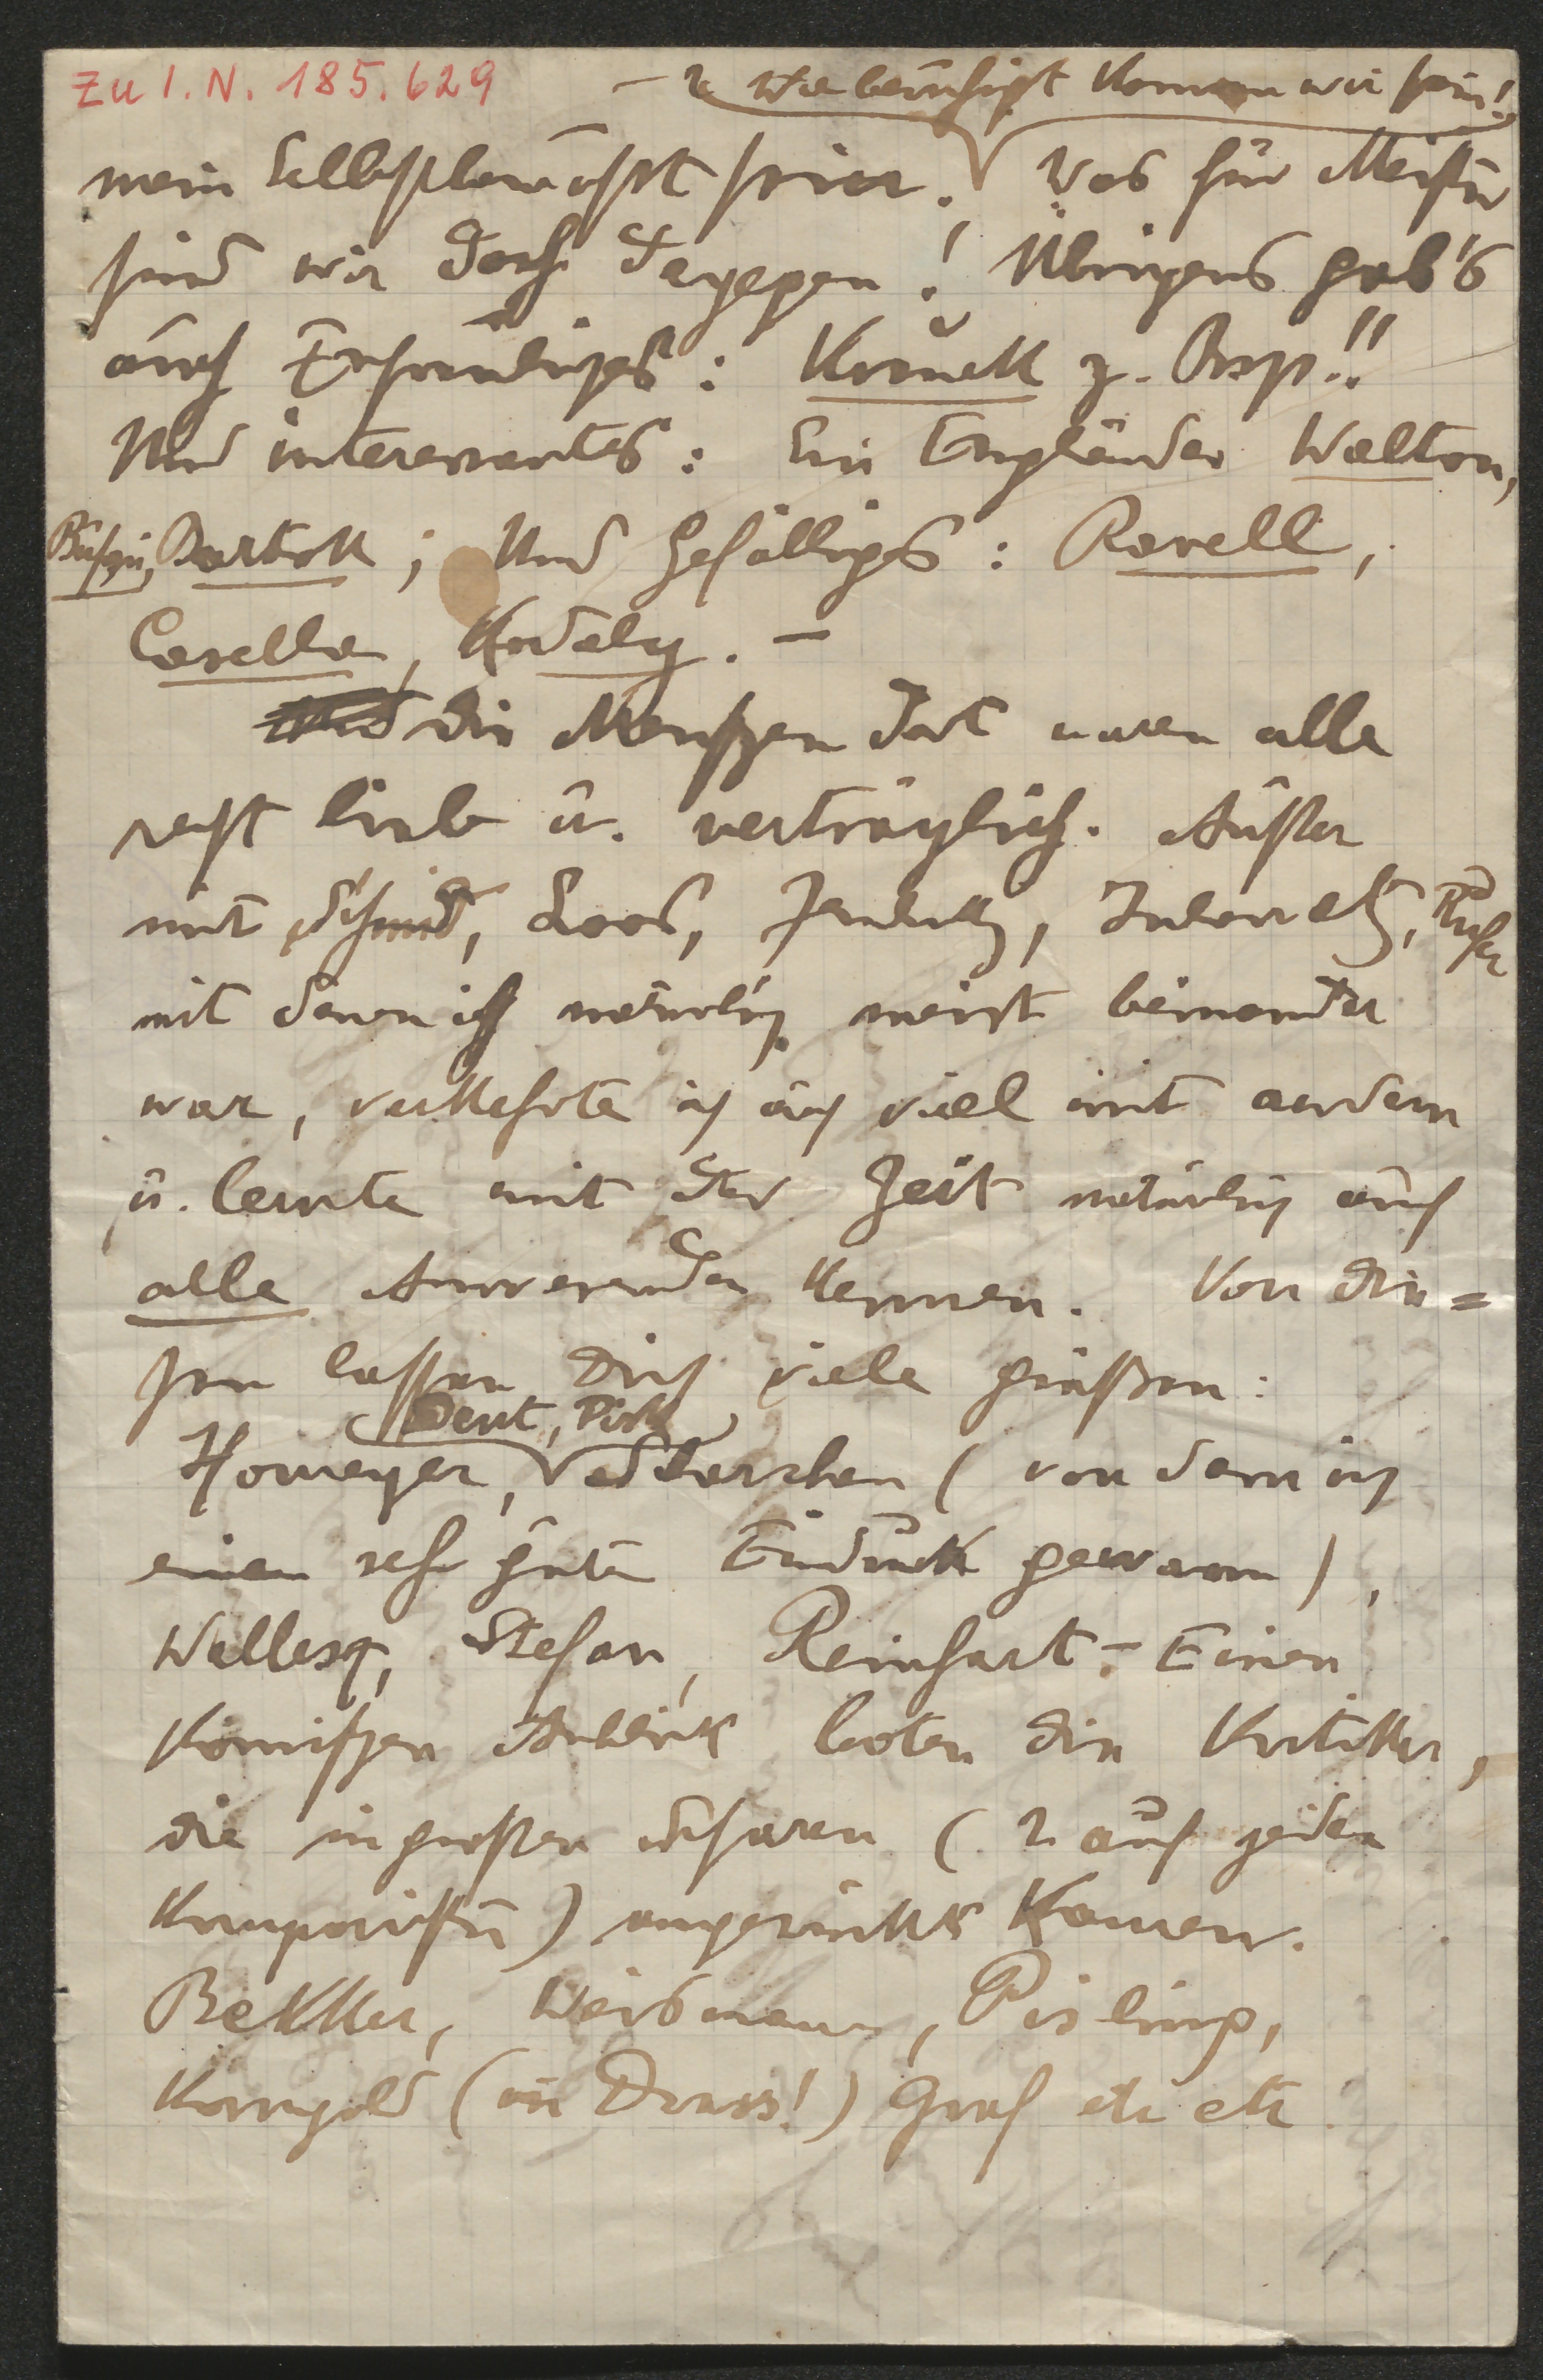 Zu I. N. 185.629
– u. wie beruhigt können wir sein!
mein Selbstbewußtsein. Was für Meister
sind wir doch dagegen! Übrigens gab's
auch Erfreuliches: Křenek z. Bsp.!!
Und interessantes: Ein Engländer Walton,
Butzn, Bartok; Und Gefälliges: Ravell,
Casella, Kodaly. –
die Menschen dort waren alle
recht lieb u. verträglich. Außer
mit Schmid, Loos, Jemnitz, Jalowetz, Rufer
mit denen ich natürlich meist beinander
war, verkehrte ich auch viel mit andern
u. lernte mit der Zeit natürlich auch
alle Anwesenden kennen. Von die=
sen lassen Dich viele grüßen:
Dent, Pisk
Homeyer, Scherchen (von dem ich
einen sehr guten Eindruck gewann),
Wellesz, Stefan, Reinhart – Einen
komischen Anblick boten die Kritiker,
die in großen Scharen (2 auf jeden
Komponisten) angerückt kamen.
Bekker, Weissmann, Pisling,
Korngold (in Dress!) Graf etc etc